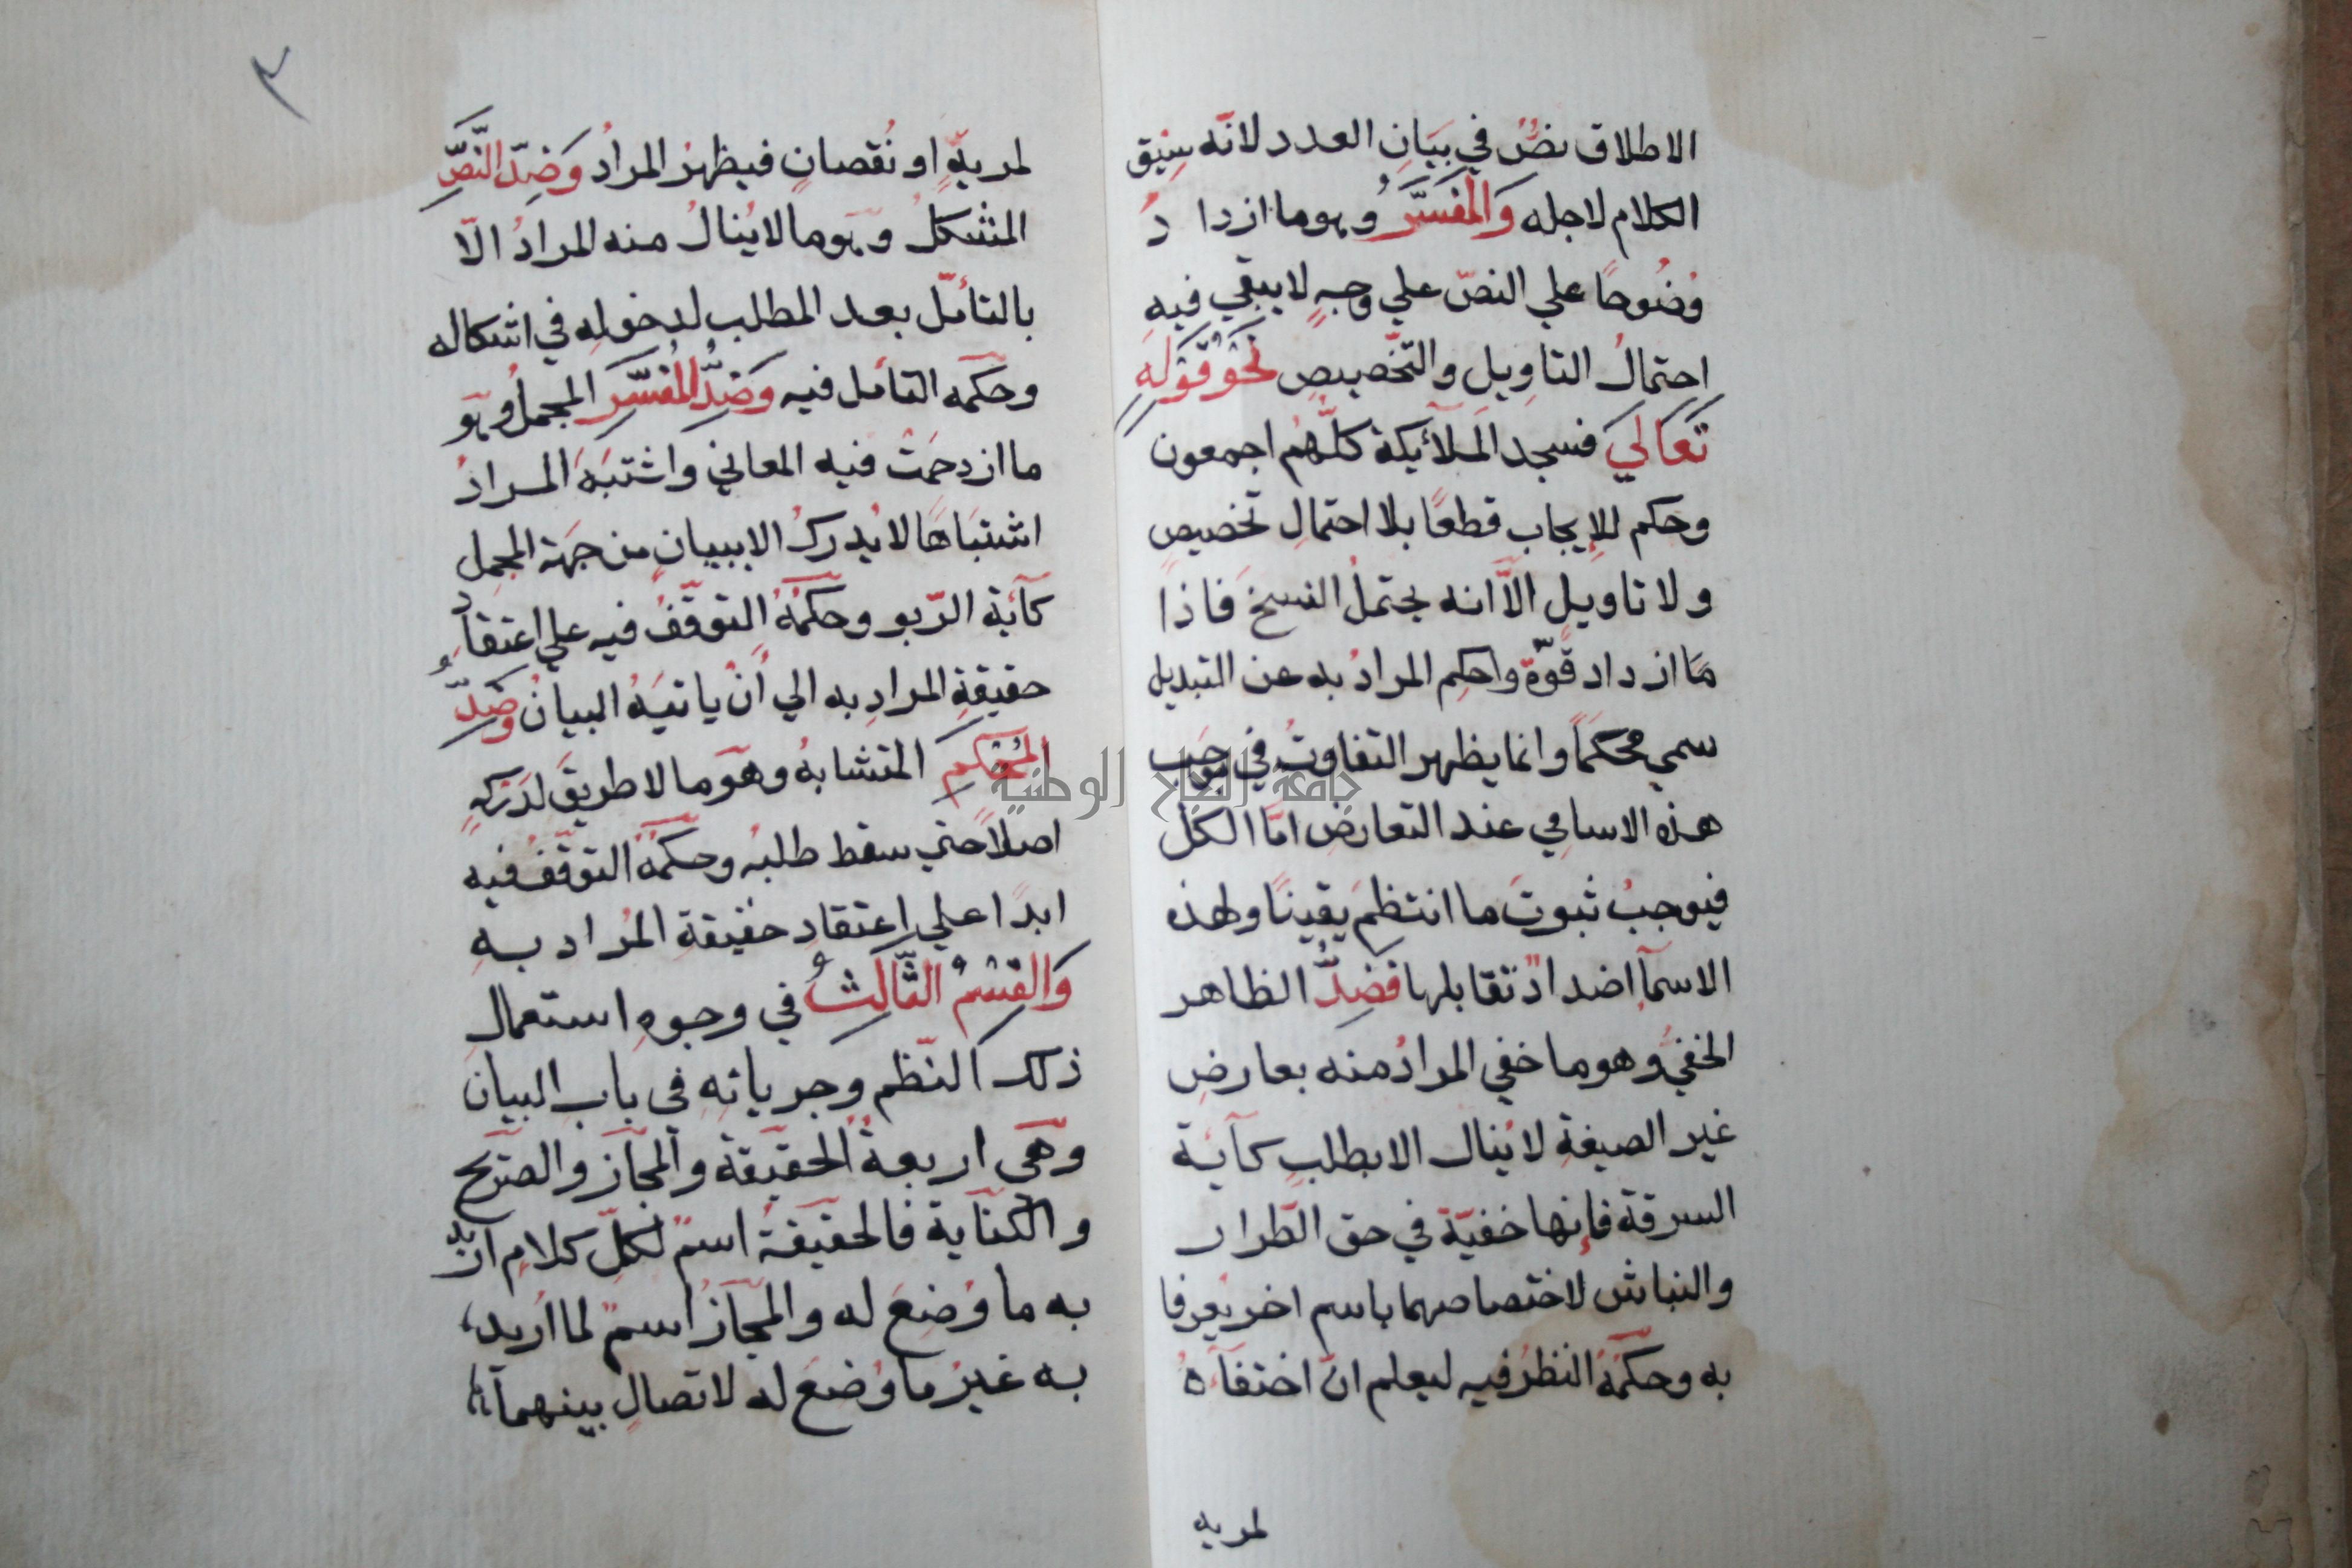 الاطلاق نصٌّ في بَيَانِ العدد لانّه سِيْق
الكلام لاجله وَالمُفَسَّرُ وهو ما ازدا دُ
وُضُوحًا علي النصّ علي وجهٍ لا يبقي فيهِ
احتمالُ التاوِيل والتخْصِيصِ نَحْوُ قَوْلِهِ
تَعَالَيَ فسجد المَلآئِكة كلّهُم اجمعون
وحكم للإيجاب قطعًا بلا احتمالِ تخصيصٍ
ولا تاويلٍ الاّ انه يحتملُ النسخَ فاذا
مَا ازداد قوّةً واحكِم المرادُ به عن التبديل
سمي محكمًا وانما يظهر التفاوتُ في موجَب
هذه الاسامِي عند التعارضِ امّا الكل
فيوجبُ ثبوتَ ما انتظمَ يقينًا ولهذه
الاسمآءِ اضدادٌ تقابلها فَضِدُّ الظاهر
الخفيُّ وهو ما خفي المرادُ منه بعارضِ
غير الصيغةِ لا يُنال الا بطلبٍ كآيَة
السرقة فإنها خفيّة في حق الطّرار
والنباش لاختصاصهما باسم اخر يُعرفا
به وحكمهُ النظرُ فيه ليعلم انّ اختفآءهُ
لمزية
٢
لمزيةٍ او نُقصانٍ فيظهرُ المرادُ وَضِدّ النَّصِّ
المشكلُ وهَوما لا يُنالُ منه المرادُ الاّ
بالتأمّل بعد المطلب لدخولِه في اشكاله
وحكمه التأمل فيه وَضِدُّ المُفَسَّرِ المجملُ وهَو
ما ازدحَمَتْ فيه المعاني واشتبَهَ المرادُ
اشتبَاهًا لا يُدركُ الا ببيانٍ من جهَة المجمِل
كآيَة الرّبو وحكمهُ التوقّفُ فيه علي اعتقادِ
حقيقةِ المرادِ به الي أنْ ياتيَهُ البيانُ وَضِدُّ
المُحْكَمِ المتشابهُ وهوَ ما لا طريقَ لدَرْكِهِ
اصلاً حتي سقط طلبُه وحكمُهُ التوقّفُ فيه
ابدًا علي اعتقادِ حقيقةِ المُراد بهِ
وَالقِسْمُ الثَّالِثُ في وجوهِ استعمال
ذلك النّظم وجريانِهِ في باب البيان
وهَي اربعةٌ الحقيقة والمجاز والصريح
والكناية فالحقيقةُ اسمٌ لكلّ كلامٍ اريد
به ما وُضِعَ له والمجازُ اسمٌ لما اُريد
به غيرُ ما وُضعَ له لاتصالٍ بينهمآ
جامعة النجاح الوطنية